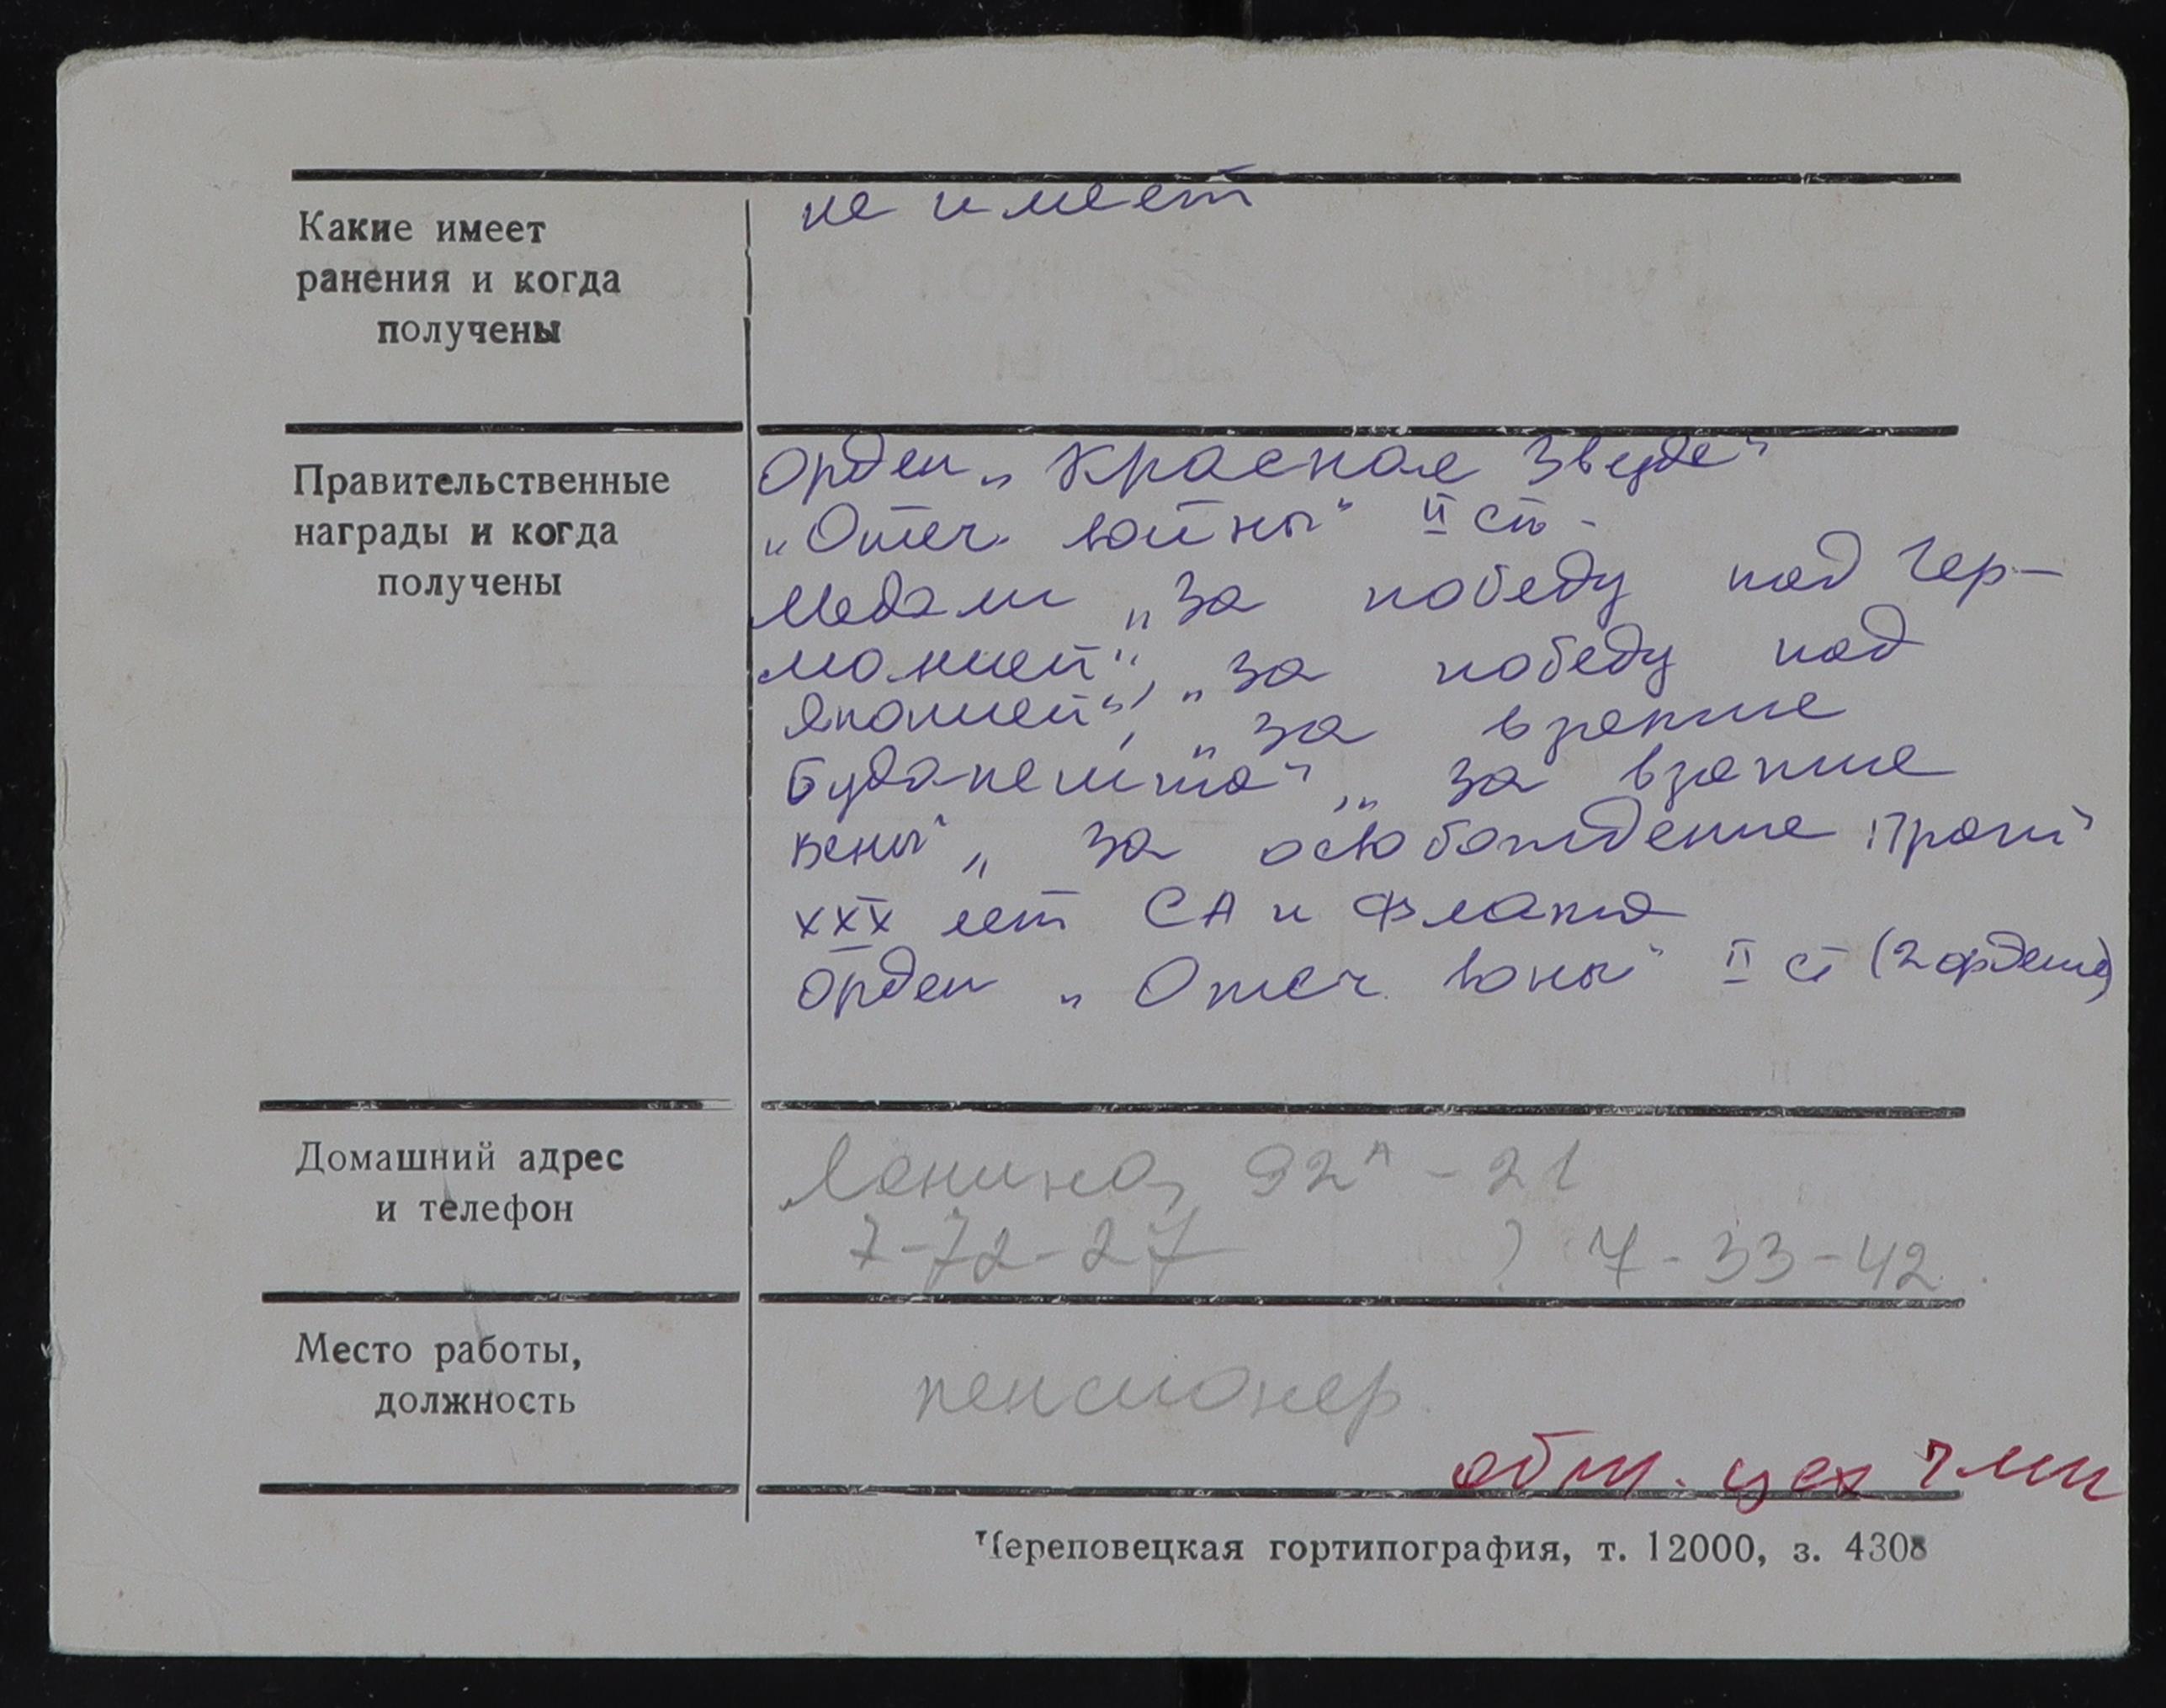 Какие имеет
ранения и когда
получены
не имеет
Правительственные
награды и когда
получены
Орден „Красная Звезда“
„Отеч. войны“ II ст.
Медали „За победу над Гер-
манией“, „За победу над
Японией“, „За взятие
Будапешта“, „За взятие
Вены“, „За освобождение Праги“
XXX лет СА и Флота
Орден „Отеч. воны“ II ст (2 ордена)
Домашний адрес
и телефон
Ленина, 92А - 21
7-72-27 ) 7-33-42
Место работы,
должность
пенсионер
цех
Череповецкая гортипография, т. 12000, з. 4308